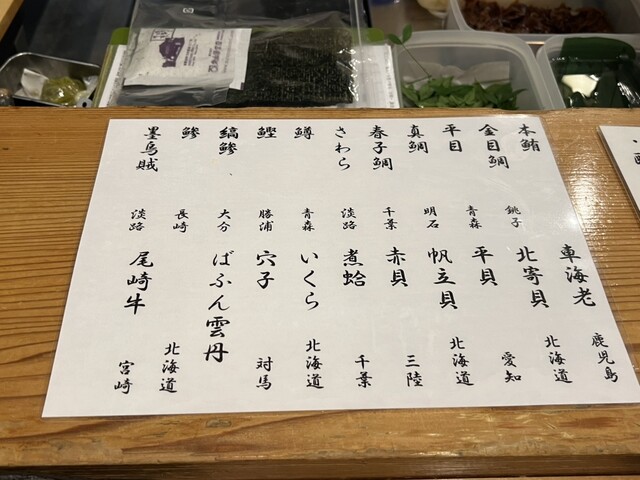 本鮪
金目鯛 銚子
平目 青森
真鯛 明石
春子鯛 千葉
さわら 淡路
鱒 青森
鰹 勝浦
縞鯵 大分
鯵 長崎
墨烏賊 淡路
車海老 鹿児島
北寄貝 北海道
平貝 愛知
帆立貝 北海道
赤貝 三陸
煮蛤 千葉
いくら 北海道
穴子 対馬
ばふん雲丹 北海道
尾崎牛 宮崎